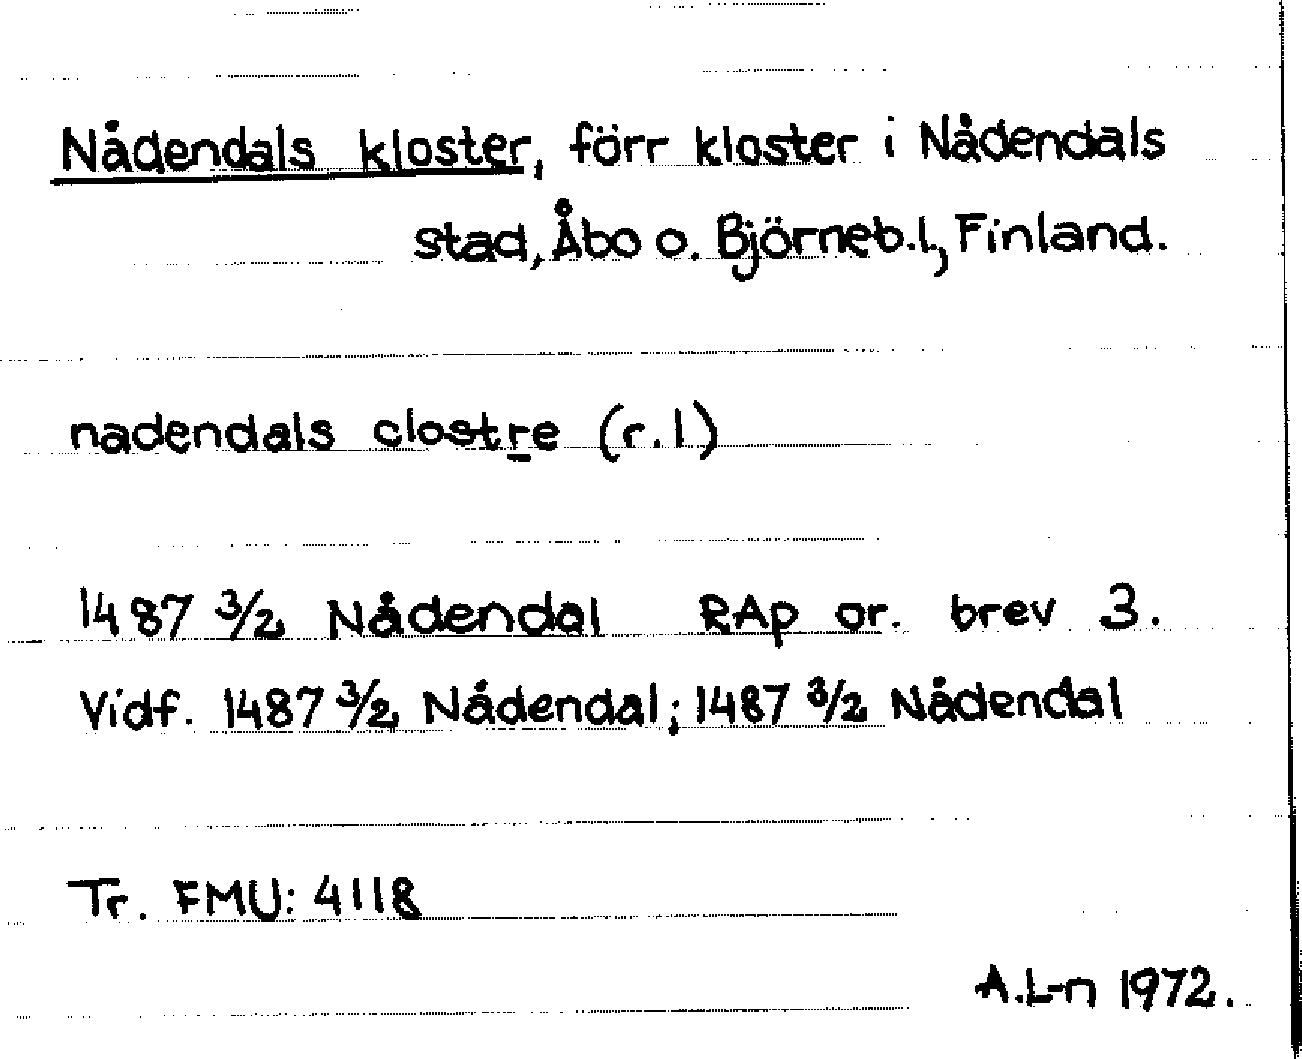 Nådendals kloster, förr kloster i Nådendals
stad, Åbo o. Björneb.l., Finland.
nadendals clostre (r.1)
1487 3/2 Nådendal RAp or. brev 3.
Vidf. 1487 3/2 Nådendal; 1487 3/2 Nådendal
Tr. FMU: 4118
A.L-n 1972.